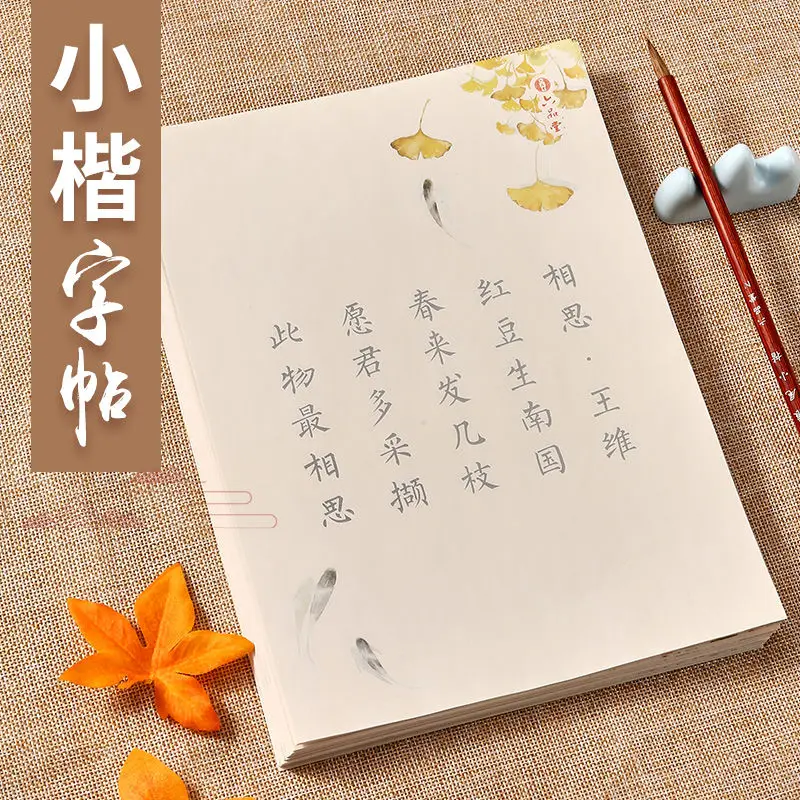 小楷字帖
六品堂
相思·王维
红豆生南国
春来发几枝
愿君多采撷
此物最相思